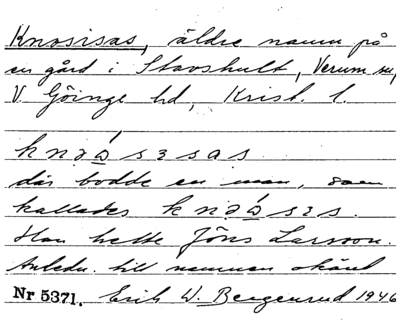 Knosisas, äldre namn på
en gård i Stavshult, Verum sn,
V. Göinge hd, Krist. l.
knəòsɪsas
där bodde en man, som
kallades knəòsɪs.
Han hette Jöns Larsson.
Anledn. till namnen okänd
Nr 5371. Erik W. Bergenrud 1946